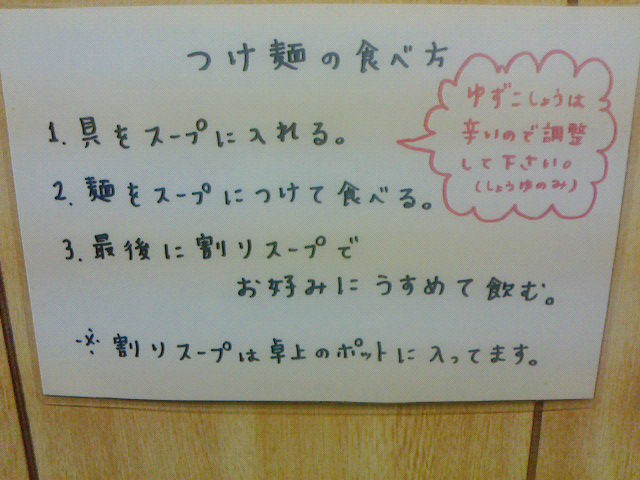 つけ麺の食べ方
1. 具をスープに入れる。
2. 麺をスープにつけて食べる。
3. 最後に割りスープで
お好みにうすめて飲む。
※ 割りスープは卓上のポットに入ってます。
ゆずこしょうは
辛いので調整
して下さい。
(しょうゆのみ)